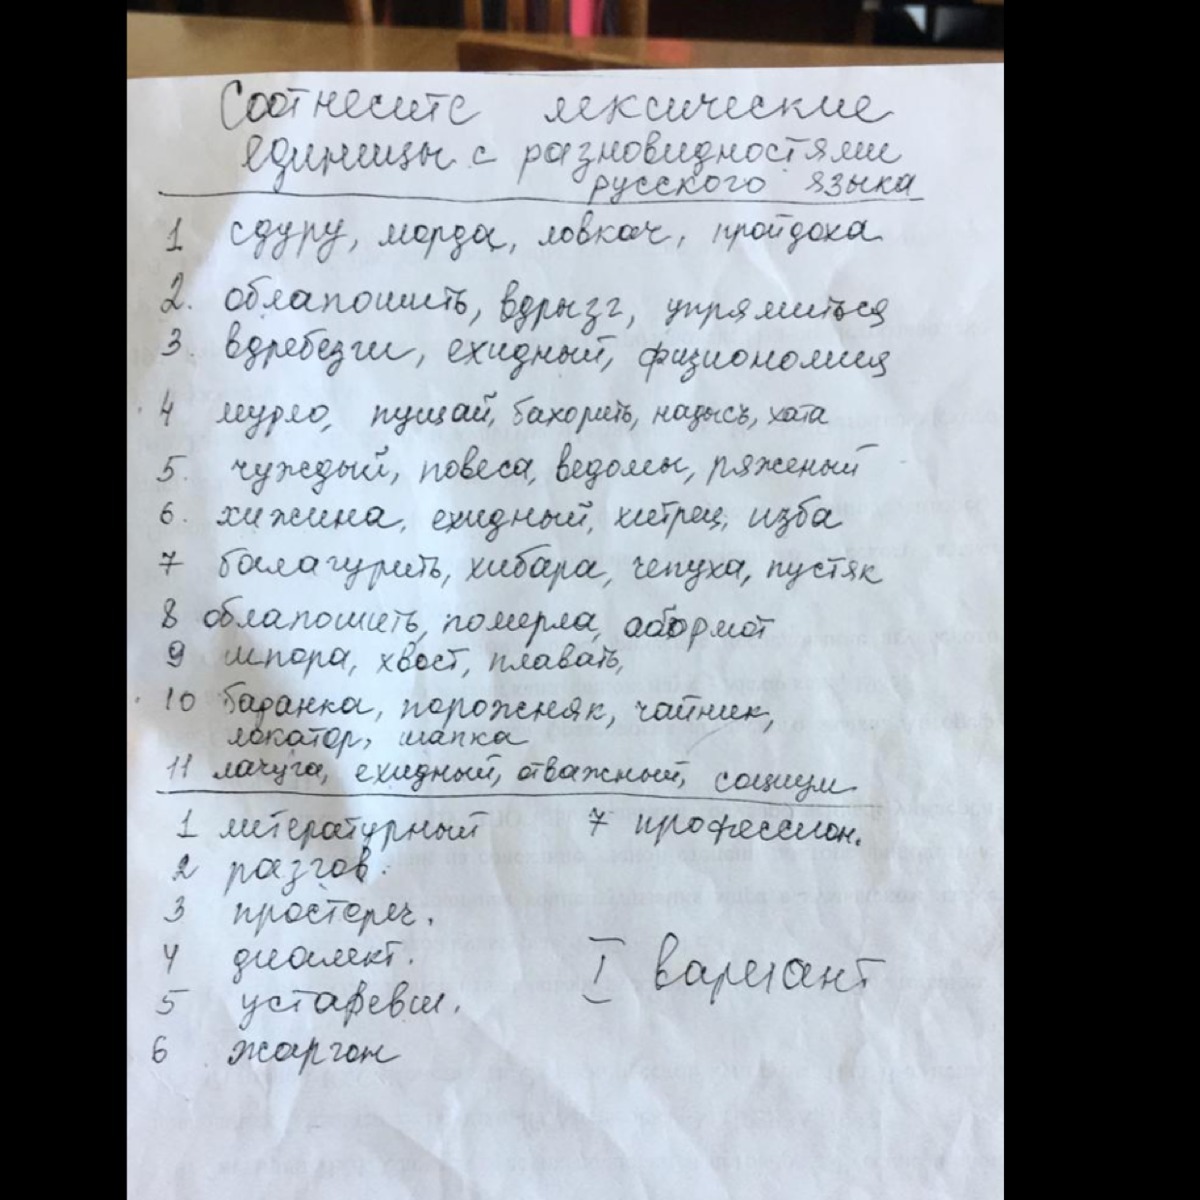 Соотнесите лексические
единицы с разновидностями
русского языка
1 сдуру, морда, ловкач, пройдоха
2. облапошить, вдрызг, упрямиться
3. вдребезги, ехидный, физиономия
4 мурло, пущай, бахорить, надысь, хата
5 чуждый, повеса, ведомы, ряженый
6. хижина, ехидный, хитрец, изба
7 балагурить, хибара, чепуха, пустяк
8 облапошить, померла, обормот
9 шпора, хвост, плавать,
10 баранка, порожняк, чайник,
локатор, шапка
11 лачуга, ехидный, отважный, социум
1 литературный 7 профессион.
2 разгов.
3 простореч.
4 диалект.
5 устаревш.
6 жаргон
I вариант